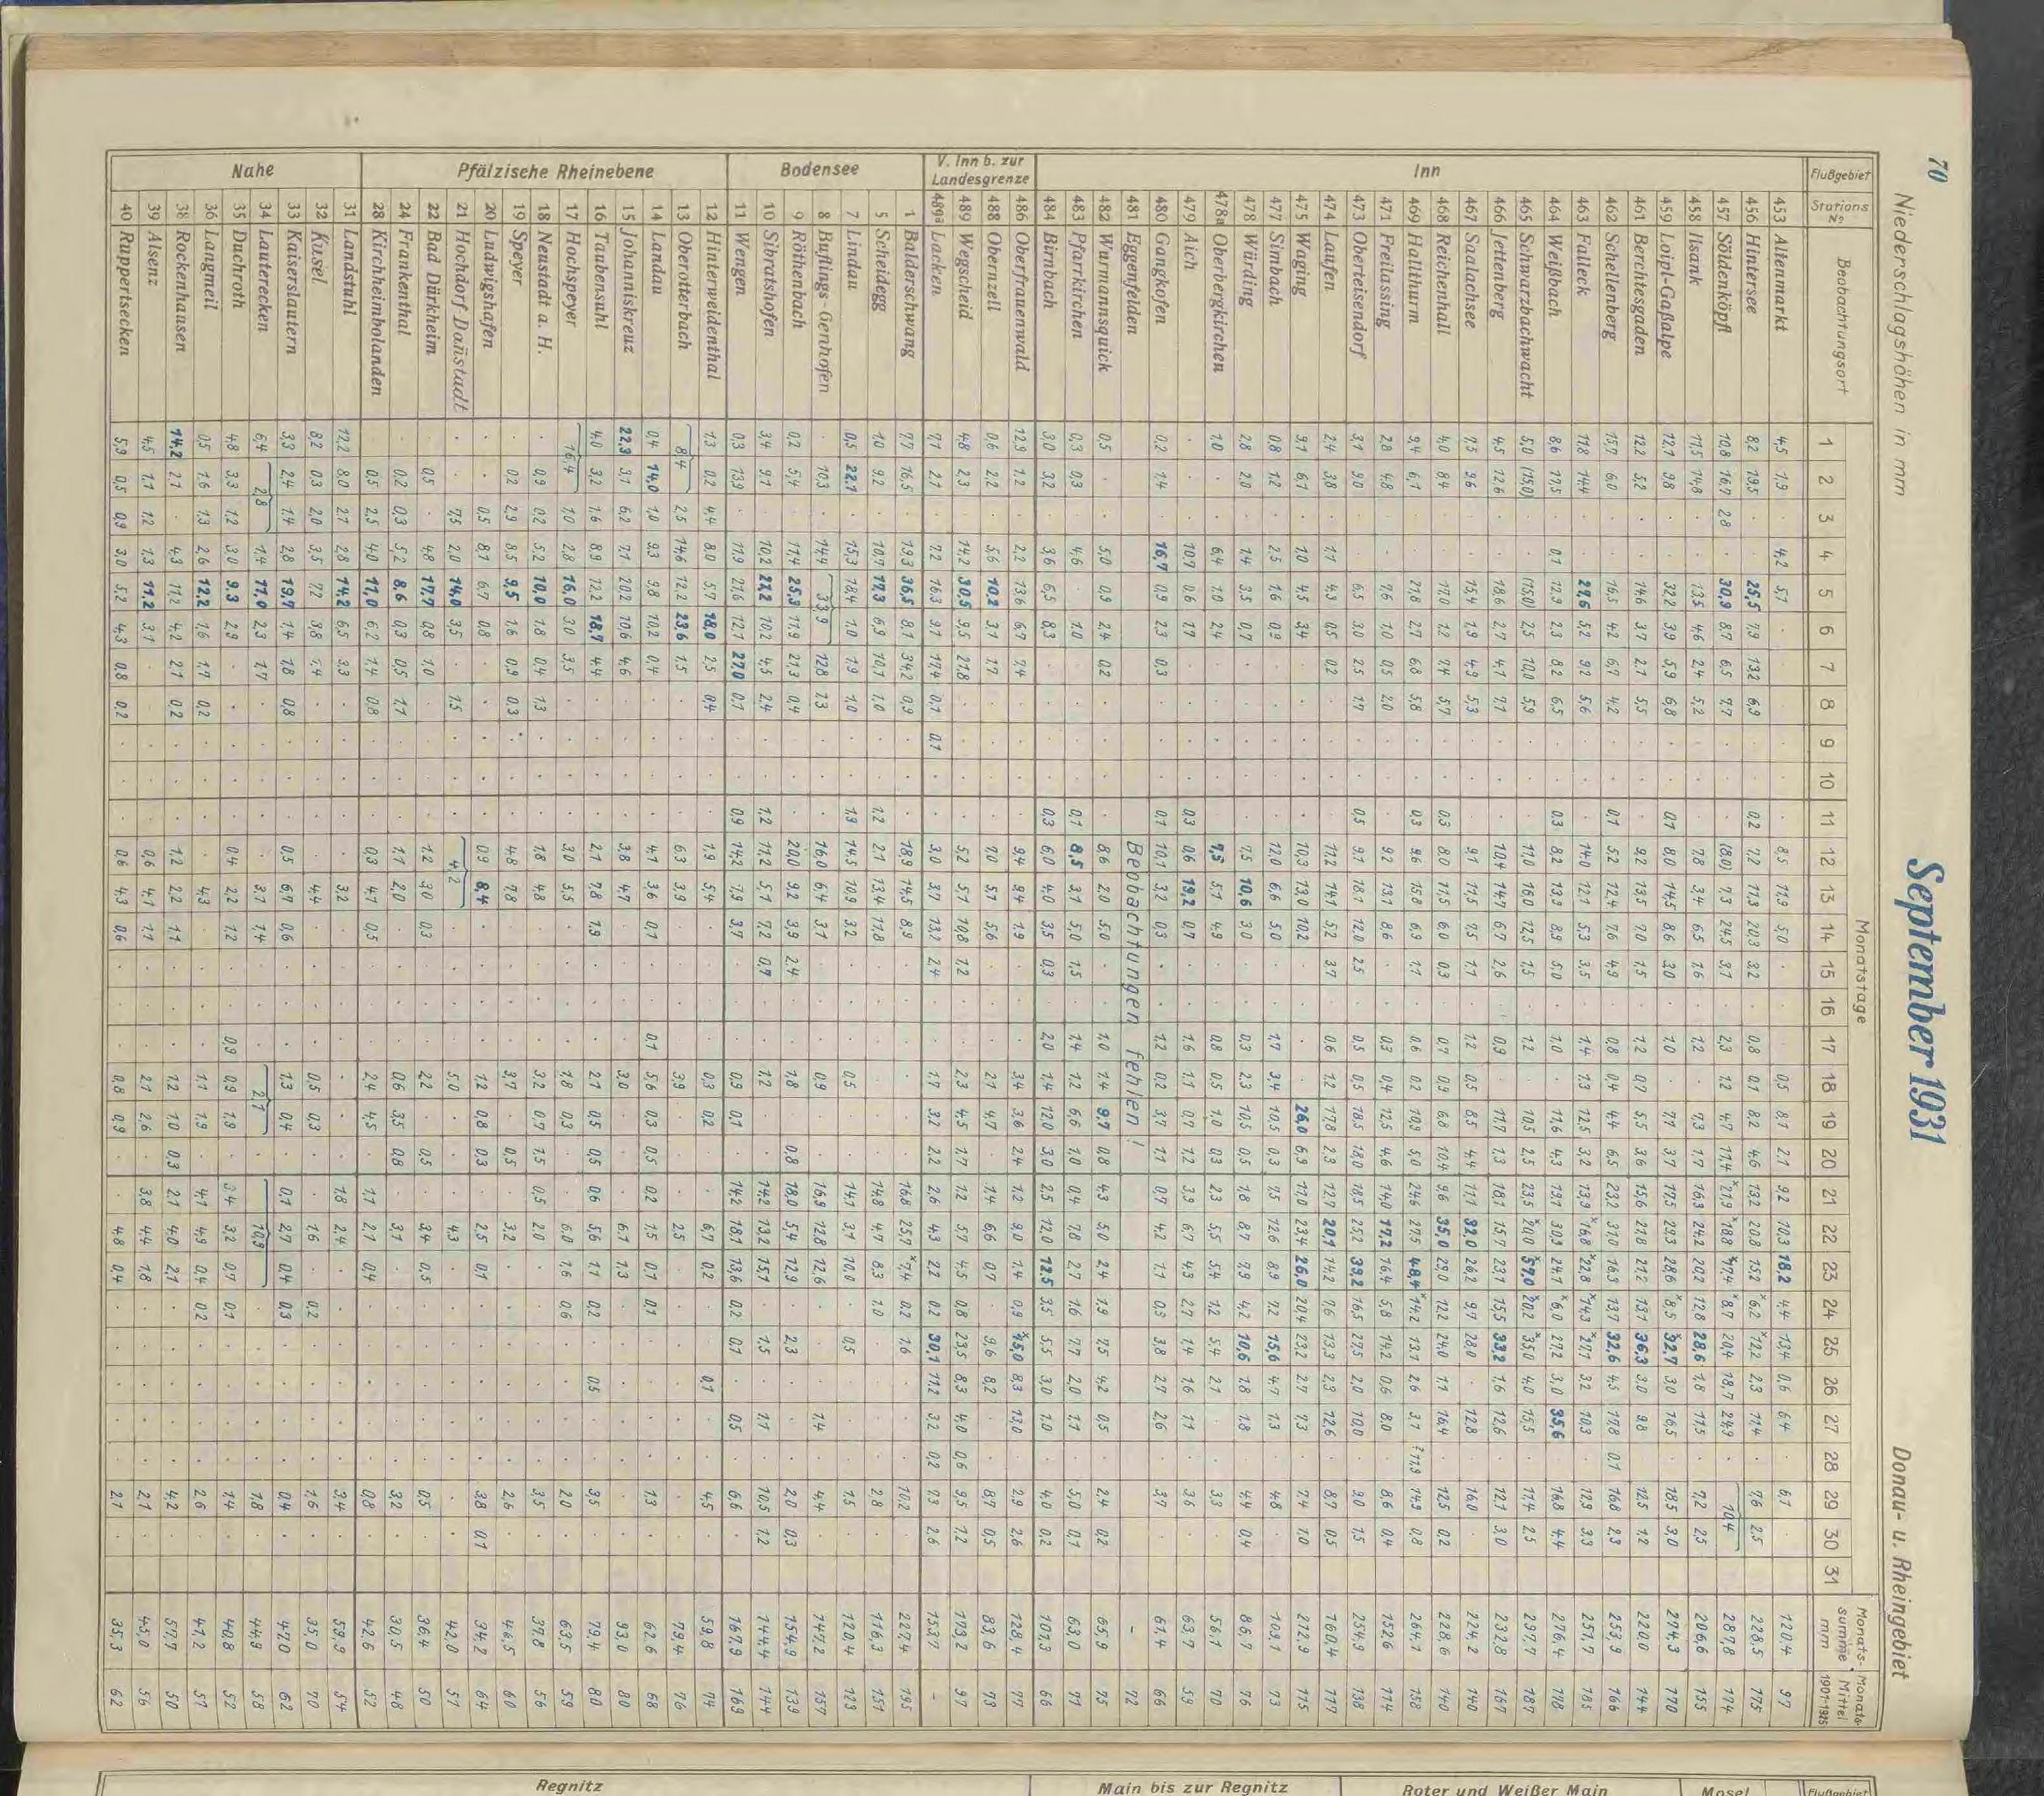 70
Niederschlagshöhen in mm
September 1931
Donau- u. Rheingebiet
Flußgebiet
Stations Nº
Beobachtungsort
Monatstage
1 2 3 4 5 6 7 8 9 10 11 12 13 14 15 16 17 18 19 20 21 22 23 24 25 26 27 28 29 30 31
Monatssumme mm
Monats-Mittel 1901-1925
Inn
453 Altenmarkt 4,5 1,9 4,2 5,7 8,5 11,9 5,0 0,5 8,1 2,1 9,2 10,3 18,2 4,4 13,4 0,6 6,4 6,1 120,4 97
456 Hintersee 8,2 19,5 25,5 7,9 13,2 6,9 0,2 7,2 11,3 20,3 3,2 0,8 0,1 8,2 4,6 13,2 20,8 15,2 6,2 12,2 2,3 11,4 7,6 2,5 228,5 175
457 Söldenköpfl 10,8 16,7 2,8 30,9 8,7 6,5 7,7 (8,0) 7,3 24,5 3,7 2,3 1,2 4,7 11,4 21,9 18,8 17,4 8,7 20,4 18,7 24,9 10,4 287,8 174
458 Ilsank 11,5 14,8 13,5 4,6 2,4 5,2 7,8 3,4 6,5 1,6 1,2 7,3 1,7 16,3 24,2 20,2 12,8 28,6 1,8 11,5 7,2 2,5 206,6 155
459 Loipl-Gaßalpe 12,1 9,8 32,2 3,9 5,9 6,8 0,1 8,0 14,5 8,6 3,0 1,0 7,7 3,7 17,5 29,3 28,6 8,5 32,7 3,0 16,5 18,5 3,0 274,3 170
461 Berchtesgaden 12,2 5,2 14,6 3,7 2,1 5,5 9,2 13,5 7,0 1,5 1,2 0,7 5,5 3,6 15,6 21,8 21,2 13,1 36,3 3,0 9,8 12,5 1,2 220,0 144
462 Schellenberg 15,7 6,0 16,5 4,2 6,7 4,2 0,1 5,2 12,4 7,6 4,9 0,8 0,4 4,4 6,5 23,2 31,0 16,3 13,7 32,6 4,5 17,8 0,1 16,8 2,3 253,9 166
463 Falleck 11,8 14,4 27,6 5,2 9,2 5,6 14,0 12,1 5,3 3,5 1,4 1,3 12,5 3,2 13,9 16,8 22,8 14,3 27,1 3,2 10,3 12,9 3,3 251,7 185
464 Weißbach 8,6 17,5 0,1 12,9 2,3 8,2 6,5 0,3 8,2 13,3 8,9 5,0 1,0 11,6 4,3 19,1 30,3 24,1 6,0 27,2 3,0 35,6 16,8 4,4 276,4 178
465 Schwarzbachwacht 5,0 (15,0) (15,0) 2,5 10,0 5,9 11,0 16,0 12,5 1,5 1,2 10,5 2,5 23,5 20,0 57,0 20,2 35,0 4,0 15,5 11,4 2,5 297,7 187
466 Jettenberg 4,5 12,6 18,6 2,7 4,1 7,1 10,4 14,7 6,7 2,6 0,9 11,7 1,3 18,1 15,7 23,1 15,5 33,2 1,6 12,6 12,1 3,0 232,8 167
467 Saalachsee 7,5 9,6 15,4 1,9 4,9 5,3 9,1 11,5 7,5 1,7 1,2 0,5 8,5 4,4 17,1 32,0 26,2 9,7 28,0 12,8 16,0 224,2 140
468 Reichenhall 4,0 8,4 17,0 1,2 7,4 5,7 0,3 8,0 11,5 6,0 0,3 0,7 0,9 6,8 10,4 9,6 35,0 29,0 12,2 24,0 1,1 16,4 12,5 0,2 228,6 140
469 Hallthurm 9,4 6,7 21,8 2,7 6,8 5,8 0,3 9,6 15,8 6,9 1,7 0,6 0,2 10,9 5,0 24,6 27,5 48,4 14,2 13,7 2,6 3,7 ?11,9 14,9 0,8 264,7 158
471 Freilassing 2,8 4,8 7,6 1,0 0,5 2,0 9,2 13,1 8,6 0,3 0,4 12,5 4,6 14,0 17,2 16,4 5,8 14,2 0,6 8,0 8,6 0,4 152,6 114
473 Oberteisendorf 3,1 9,0 6,5 3,0 2,5 1,7 0,5 9,7 18,1 12,0 2,5 0,5 0,5 18,5 13,0 18,5 25,2 39,2 16,5 27,5 2,0 10,0 3,0 1,5 254,9 138
474 Laufen 2,4 3,8 1,1 4,3 0,5 0,2 11,2 14,1 5,2 3,7 0,6 1,2 17,8 2,3 12,7 20,1 14,2 7,6 13,3 2,3 12,6 8,7 0,5 160,4 117
475 Waging 9,1 6,7 1,0 4,5 3,4 10,3 13,0 10,2 26,0 6,9 17,0 23,4 26,0 20,4 23,2 2,7 7,3 7,4 1,0 212,9 115
477 Simbach 0,8 1,2 2,5 1,6 0,9 12,0 6,6 5,0 1,7 3,4 10,5 0,3 7,5 12,6 8,9 7,2 15,6 4,7 1,3 4,8 109,1 73
478 Würding 2,8 2,0 1,4 3,5 0,7 7,5 10,6 3,0 0,3 2,3 10,5 0,5 1,8 8,7 7,9 4,2 10,6 1,8 1,8 4,4 0,4 86,7 76
478a Oberbergkirchen 1,0 6,4 1,0 2,4 7,5 5,7 4,9 0,8 0,5 1,0 0,3 2,3 5,5 5,4 1,2 5,4 2,1 3,3 56,7 70
479 Aich 10,7 0,6 1,7 0,3 0,6 19,2 0,7 1,6 1,1 0,7 1,2 3,9 6,7 4,3 2,7 1,4 1,6 1,1 3,6 63,7 59
480 Gangkofen 0,2 1,4 16,7 0,9 2,3 0,3 0,1 10,1 3,2 0,3 1,2 0,2 3,7 1,1 0,7 4,2 1,1 0,3 3,8 2,7 2,6 3,7 61,4 66
481 Eggenfelden Beobachtungen fehlen! - 72
482 Wurmannsquick 0,5 5,0 0,9 2,4 0,2 8,6 2,0 5,0 1,0 1,4 9,7 0,8 4,3 5,0 2,4 1,9 7,5 4,2 0,5 2,4 0,2 65,9 75
483 Pfarrkirchen 0,3 0,3 4,6 1,0 0,1 8,5 3,1 5,0 1,5 1,4 1,2 6,6 1,0 0,4 7,8 2,7 1,6 7,7 2,0 1,1 5,0 0,1 63,0 71
484 Birnbach 3,0 3,2 3,6 6,5 8,3 0,3 6,0 4,0 3,5 0,3 2,0 1,4 12,0 3,0 2,5 12,0 12,5 3,5 5,5 3,0 1,0 4,0 0,2 101,3 66
V. Inn b. zur Landesgrenze
486 Oberfrauenwald 12,9 1,2 2,2 13,6 6,7 7,4 9,4 9,4 1,9 3,4 3,6 2,4 1,2 9,0 1,4 0,9 15,0 8,3 13,0 2,9 2,6 128,4 77
488 Obernzell 0,6 2,2 5,6 10,2 3,1 1,7 7,0 5,7 5,6 2,1 4,7 1,4 6,6 0,7 9,6 8,2 8,7 0,5 83,6 73
489 Wegscheid 4,8 2,3 14,2 30,5 9,5 21,8 5,2 5,7 10,8 1,2 2,3 4,5 1,7 1,2 5,7 4,5 0,8 23,5 8,3 4,0 0,6 9,5 1,2 173,2 97
489a Lacken 7,1 2,7 7,2 16,3 9,1 17,4 0,7 0,1 3,0 3,7 13,2 2,4 1,7 3,2 2,2 2,6 4,3 2,2 0,2 30,1 11,2 3,2 0,2 7,3 2,6 153,7 -
Bodensee
1 Balderschwang 7,7 16,5 19,3 36,5 8,1 34,2 0,9 18,9 14,5 8,9 16,8 25,7 7,4 0,2 1,6 10,2 227,4 195
5 Scheidegg 1,0 9,2 10,7 17,3 6,9 10,7 1,0 1,2 2,1 13,4 11,8 14,8 4,7 8,3 1,0 2,8 116,3 151
7 Lindau 0,5 22,7 15,3 18,4 1,0 1,9 1,0 1,9 14,5 10,9 3,2 0,5 14,1 3,1 10,0 0,5 1,5 120,4 123
8 Buflings-Genhofen 10,3 14,4 33,9 12,8 1,3 16,0 6,4 3,1 0,9 16,9 12,8 12,6 1,4 4,4 147,2 157
9 Röthenbach 0,2 5,4 11,4 25,3 11,9 21,3 0,4 20,0 9,2 3,9 2,4 1,8 0,8 18,0 5,4 12,9 2,3 2,0 0,3 154,9 139
10 Sibratshofen 3,4 9,1 10,2 21,2 10,2 4,5 2,4 1,2 11,2 5,7 7,2 0,7 1,2 14,2 13,2 15,1 1,5 1,1 10,5 1,2 144,4 144
11 Wengen 0,3 13,9 11,9 21,6 12,1 27,0 0,7 0,9 14,2 7,9 3,7 0,9 0,1 14,2 18,1 13,6 0,2 0,1 0,5 6,6 167,9 169
Pfälzische Rheinebene
12 Hinterweidenthal 1,3 0,2 4,4 8,0 5,7 18,0 2,5 0,4 1,9 5,4 0,3 0,2 6,7 0,2 0,1 4,5 59,8 74
13 Oberotterbach 8,4 2,5 14,6 12,2 23,6 1,5 6,3 3,9 3,9 2,5 79,4 76
14 Landau 0,4 14,0 1,0 9,3 9,8 10,2 0,4 4,1 3,6 0,1 0,1 5,6 0,3 0,5 0,2 1,5 0,1 0,1 1,3 62,6 68
15 Johanniskreuz 22,3 3,1 6,2 7,1 20,2 10,6 4,6 3,8 4,7 3,0 6,1 1,3 93,0 80
16 Taubensuhl 4,0 3,2 1,6 8,9 12,2 18,7 4,4 2,1 7,8 1,9 2,1 0,5 0,5 0,6 5,6 1,1 0,2 0,5 3,5 79,4 80
17 Hochspeyer 16,4 1,0 2,8 16,0 3,0 3,5 3,0 5,5 1,8 0,3 6,0 1,6 0,6 2,0 63,5 59
18 Neustadt a. H. 0,9 0,2 5,2 10,0 1,8 0,4 1,3 1,8 4,8 3,2 0,7 1,5 0,5 2,0 3,5 37,8 56
19 Speyer 0,2 2,9 8,5 9,5 1,6 0,9 0,3 4,8 7,8 3,7 0,5 3,2 2,6 46,5 60
20 Ludwigshafen 0,5 8,1 6,7 0,8 0,9 8,4 1,2 0,8 0,3 2,5 0,1 3,8 0,1 34,2 64
21 Hochdorf Dañstadt 7,5 2,0 14,0 3,5 1,5 4,2 5,0 4,3 42,0 57
22 Bad Dürkheim 0,5 4,8 17,7 0,8 1,0 1,2 3,0 0,3 2,2 0,5 3,4 0,5 0,5 36,4 50
24 Frankenthal 0,2 0,3 5,2 8,6 0,3 0,5 1,1 1,1 2,0 0,6 3,5 0,8 3,1 3,2 30,5 48
28 Kirchheimbolanden 0,5 2,5 4,0 11,0 6,2 1,4 0,8 0,3 4,7 0,5 2,4 4,5 1,1 2,1 0,4 0,8 42,6 52
Nahe
31 Landstuhl 12,2 8,0 2,1 2,8 14,2 6,5 3,3 3,2 1,8 2,4 3,4 59,9 54
32 Kusel 8,2 0,3 2,0 3,5 7,2 3,8 1,4 4,4 0,5 0,3 1,6 0,2 1,6 35,0 70
33 Kaiserslautern 3,3 2,4 1,4 2,8 19,7 1,4 1,8 0,8 0,5 6,7 0,6 1,3 0,4 0,1 2,7 0,4 0,3 0,4 47,0 62
34 Lauterecken 6,4 2,8 1,4 17,0 2,3 1,7 3,7 1,4 2,1 10,9 1,8 44,9 58
35 Duchroth 4,8 3,3 1,2 3,0 9,3 2,9 0,4 2,2 1,2 0,9 0,9 1,9 3,4 3,2 0,7 0,1 1,4 40,8 52
36 Langmeil 0,5 1,6 1,3 2,6 12,2 1,6 1,7 0,2 4,3 1,1 1,9 4,1 4,9 0,4 0,2 2,6 41,2 51
38 Rockenhausen 14,2 2,1 4,3 11,2 4,2 2,1 0,2 1,2 2,2 1,1 1,2 1,0 0,3 2,1 4,0 2,1 4,2 57,7 50
39 Alsenz 4,5 1,1 1,2 1,3 11,2 3,1 0,6 4,1 1,1 2,1 2,6 3,8 4,4 1,8 2,1 45,0 56
40 Ruppertsecken 5,9 0,5 0,9 3,0 5,2 4,3 0,8 0,2 0,6 4,3 0,6 0,8 0,9 4,8 0,4 2,1 35,3 62
Regnitz
Main bis zur Regnitz
Roter und Weißer Main
Mosel
Flußgebiet